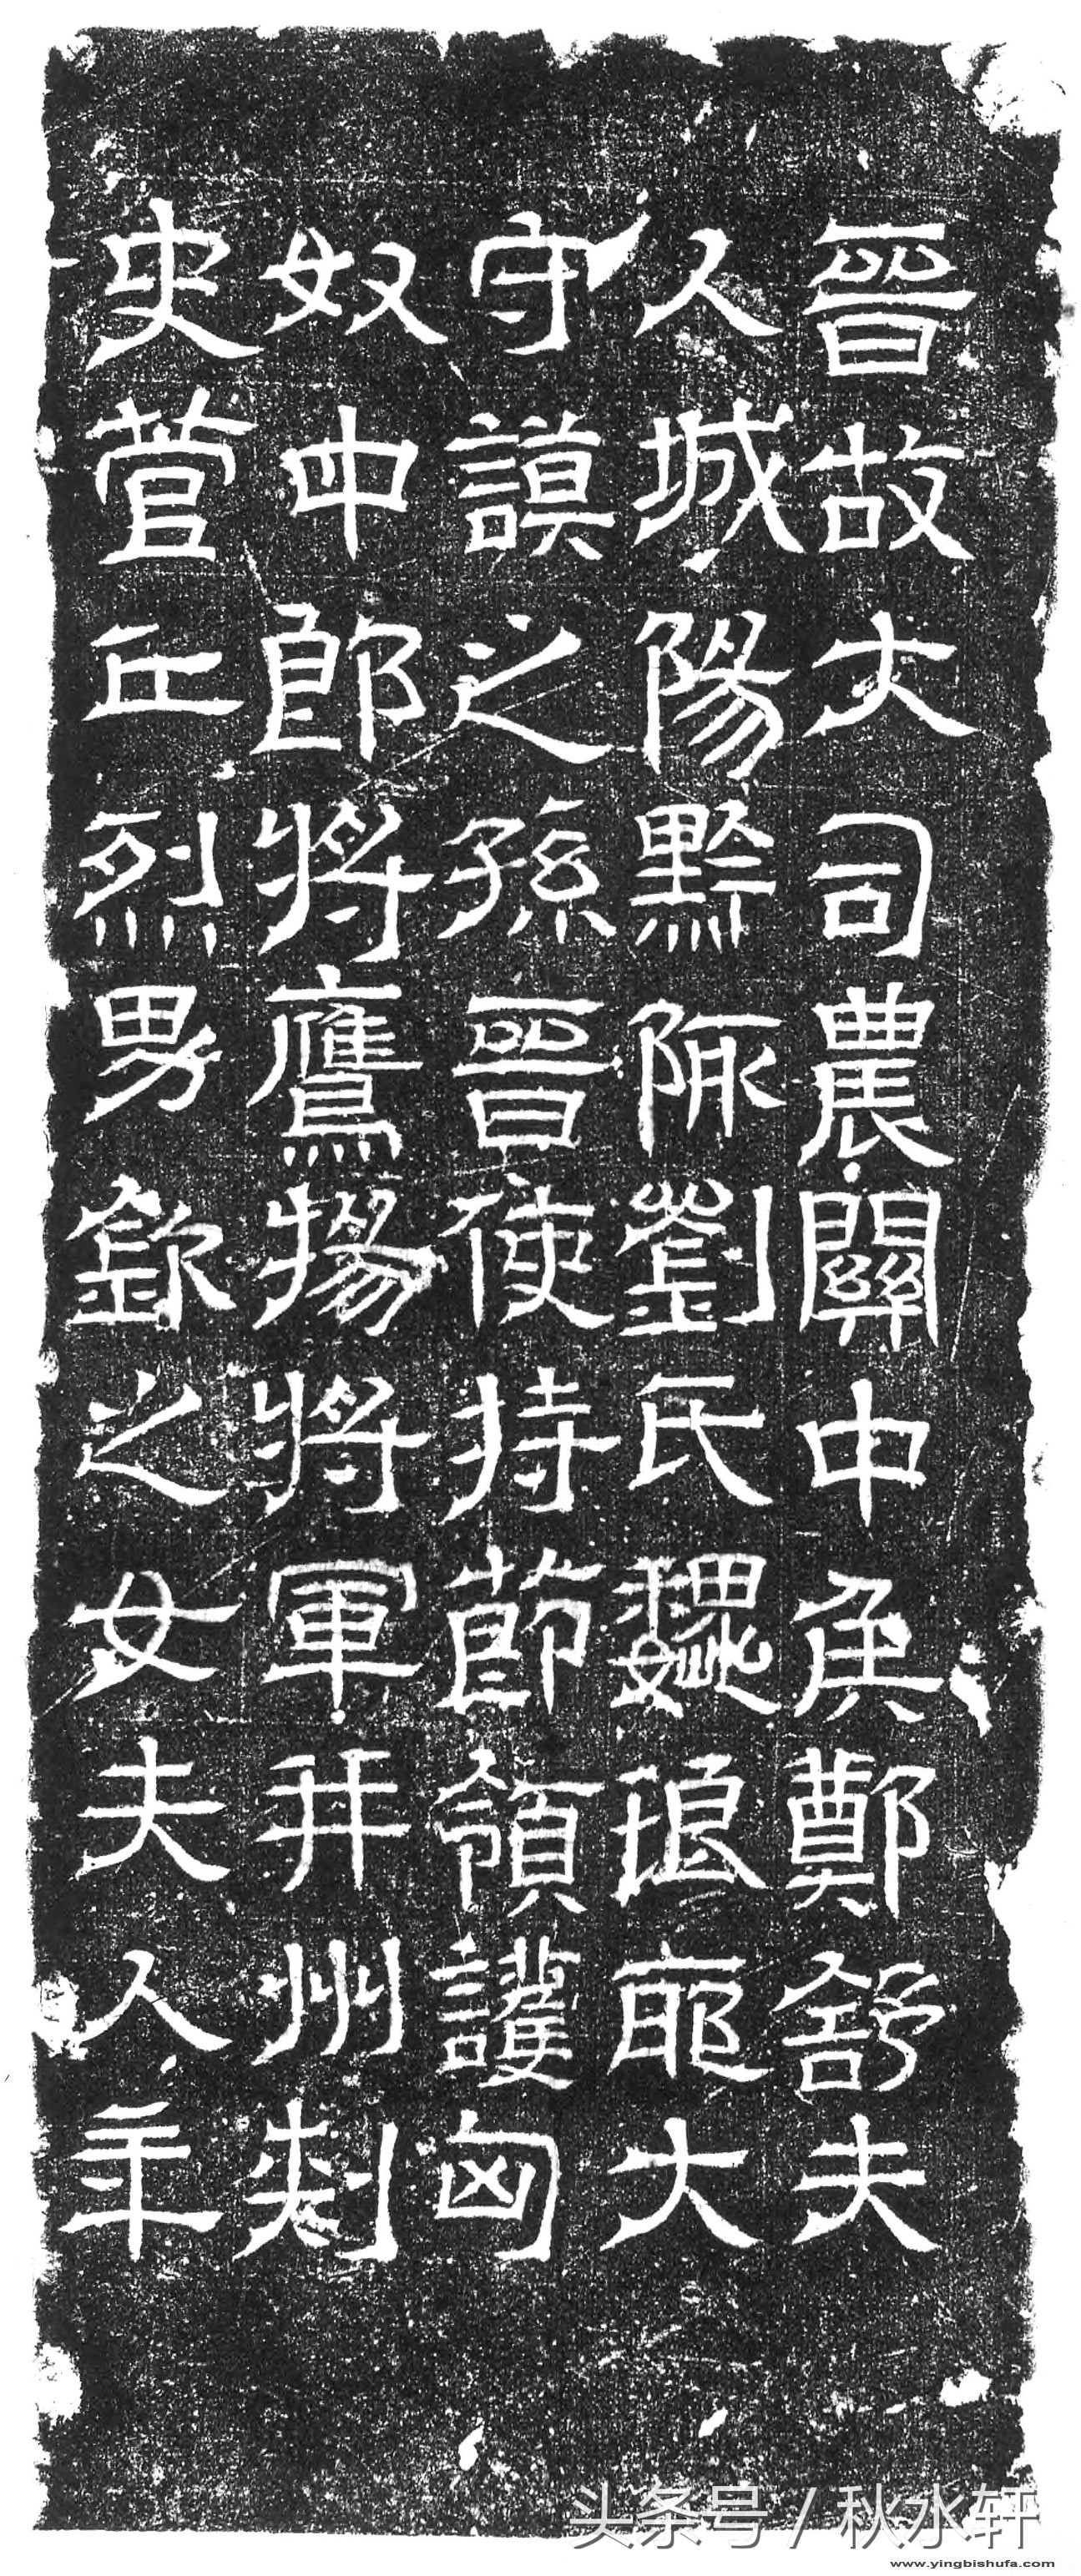 晉故大司農關中侯鄭舒夫
人城陽黔陬劉氏魏琅耶大
守謨之孫晉使持節領護匈
奴中郎將鷹揚將軍并州刺
史菅丘烈男欽之女夫人年
头条号 / 秋水轩
www.yingbishufa.com